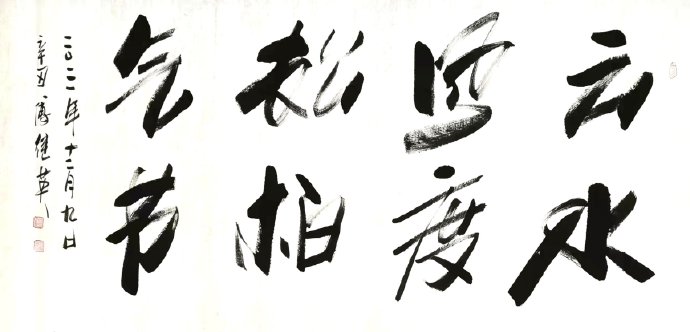 云水
风度
松柏
气节
二〇二一年十二月九日
辛丑 傅继英